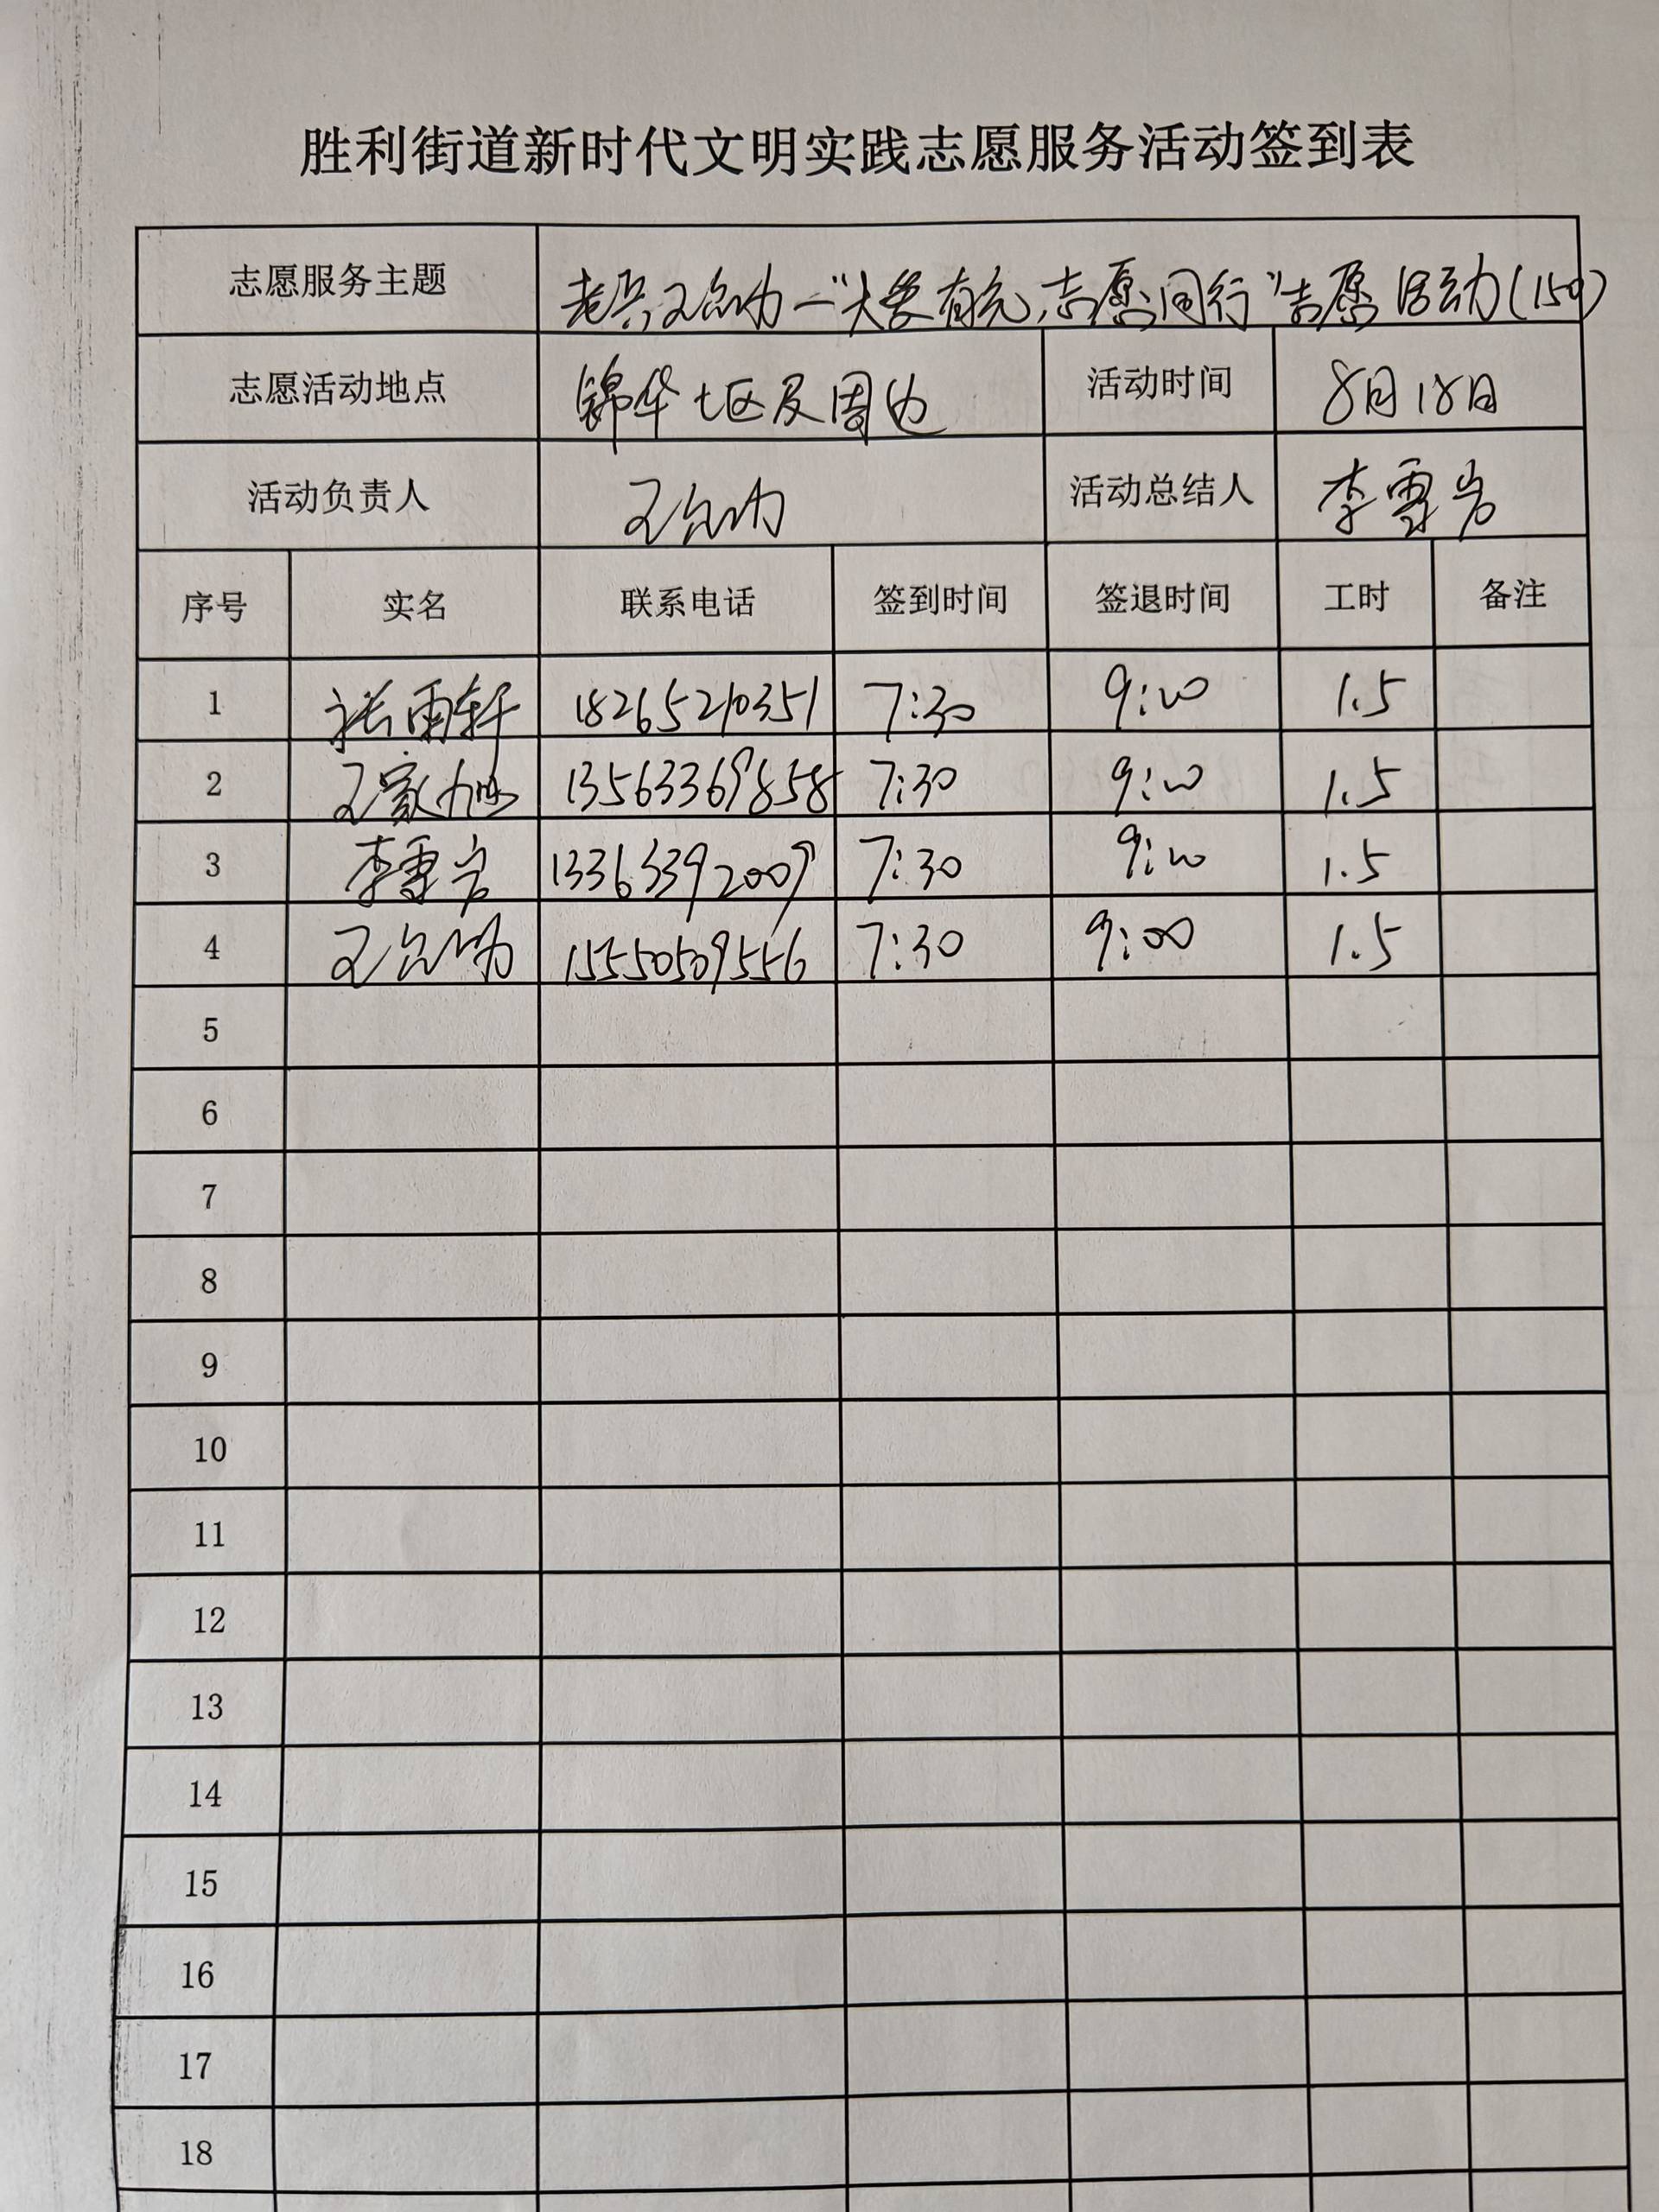 胜利街道新时代文明实践志愿服务活动签到表
志愿服务主题 老兵 志愿同行"志愿活动
志愿活动地点 锦华七区及周边 活动时间 8月18日
活动负责人 活动总结人 李雪岩
序号 实名 联系电话 签到时间 签退时间 工时 备注
1 张雨轩 18265210351 7:30 9:00 1.5
2 王家旭 13563369858 7:30 9:00 1.5
3 李雪岩 13363392009 7:30 9:00 1.5
4 15550509556 7:30 9:00 1.5
5
6
7
8
9
10
11
12
13
14
15
16
17
18